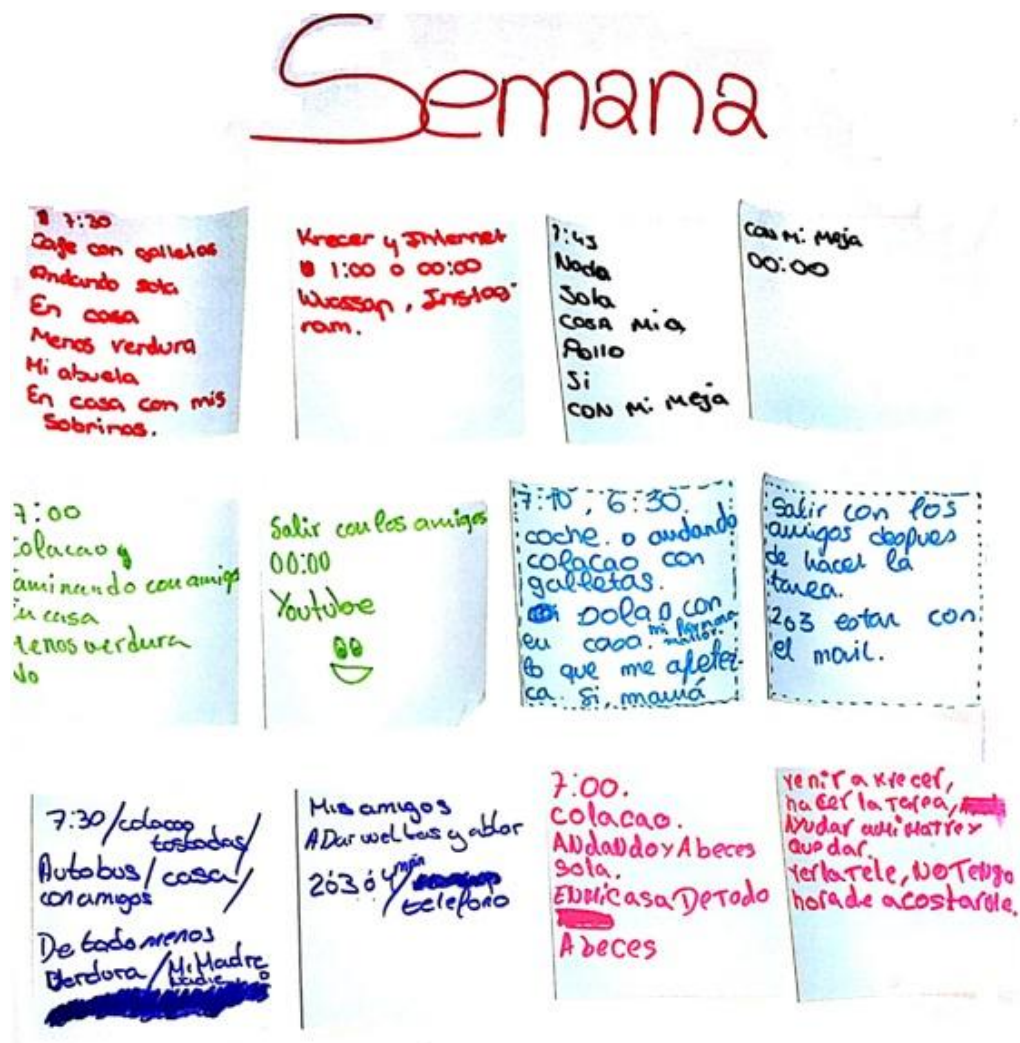 Semana
7:30
Cafe con galletas
Andando sola
En casa
Menos verdura
Mi abuela
En casa con mis
Sobrinos.
Krecer y Internet
1:00 o 00:00
Wassap, Instag-
ram.
7:45
Nada
Sola
COSA MIA
Pollo
Si
CON Mi Meja
CON Mi Meja
00:00
7:00
colacao y
aminando con amigo
En casa
Menos verdura
No
Salir con los amigos
00:00
Youtube
7:10, 6:30.
coche. o andando
colacao con
galletas.
Sola o con
mi hermana
mallor.
en casa.
lo que me apetez-
ca. Si, mamá
Salir con los
amigos despues
de hacer la
tarea.
2ó3 estar con
el mail.
7:30/colacao
tostadas/
Autobus/casa/
con amigos
De todo menos
Verdura/Mi Madre
o
nadie
Mis amigos
A Dar weltas y ablar
2ó3ó4/mín
telefono
7:00.
colacao.
ANdaNdo y Abeces
Sola.
EN Mi Casa De Todo
Abeces
Venir a Krecer,
hacer la Tarea,
Ayudar a mi Matre y
quedar.
ver la Tele, No Tengo
hora de acostarme.